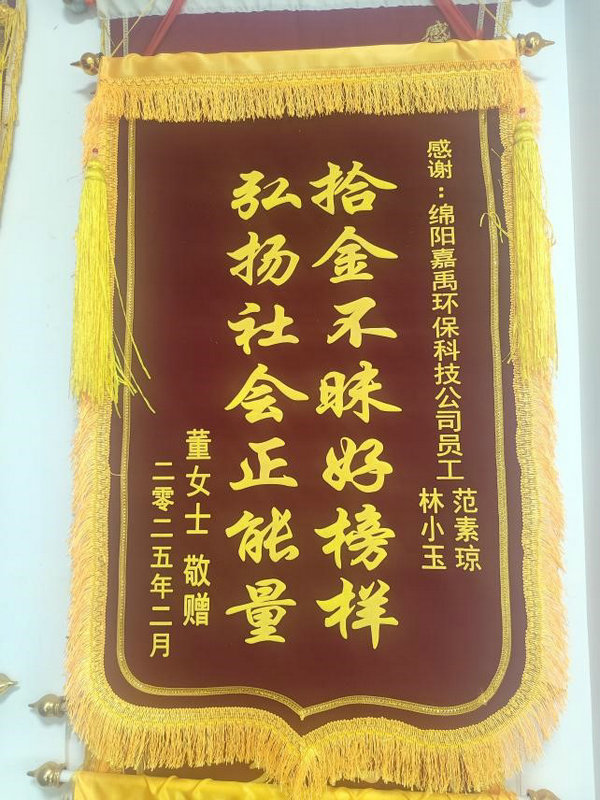 感谢：绵阳嘉禹环保科技公司员工
范素琼
林小玉
拾金不昧好榜样
弘扬社会正能量
董女士 敬赠
二零二五年二月
感